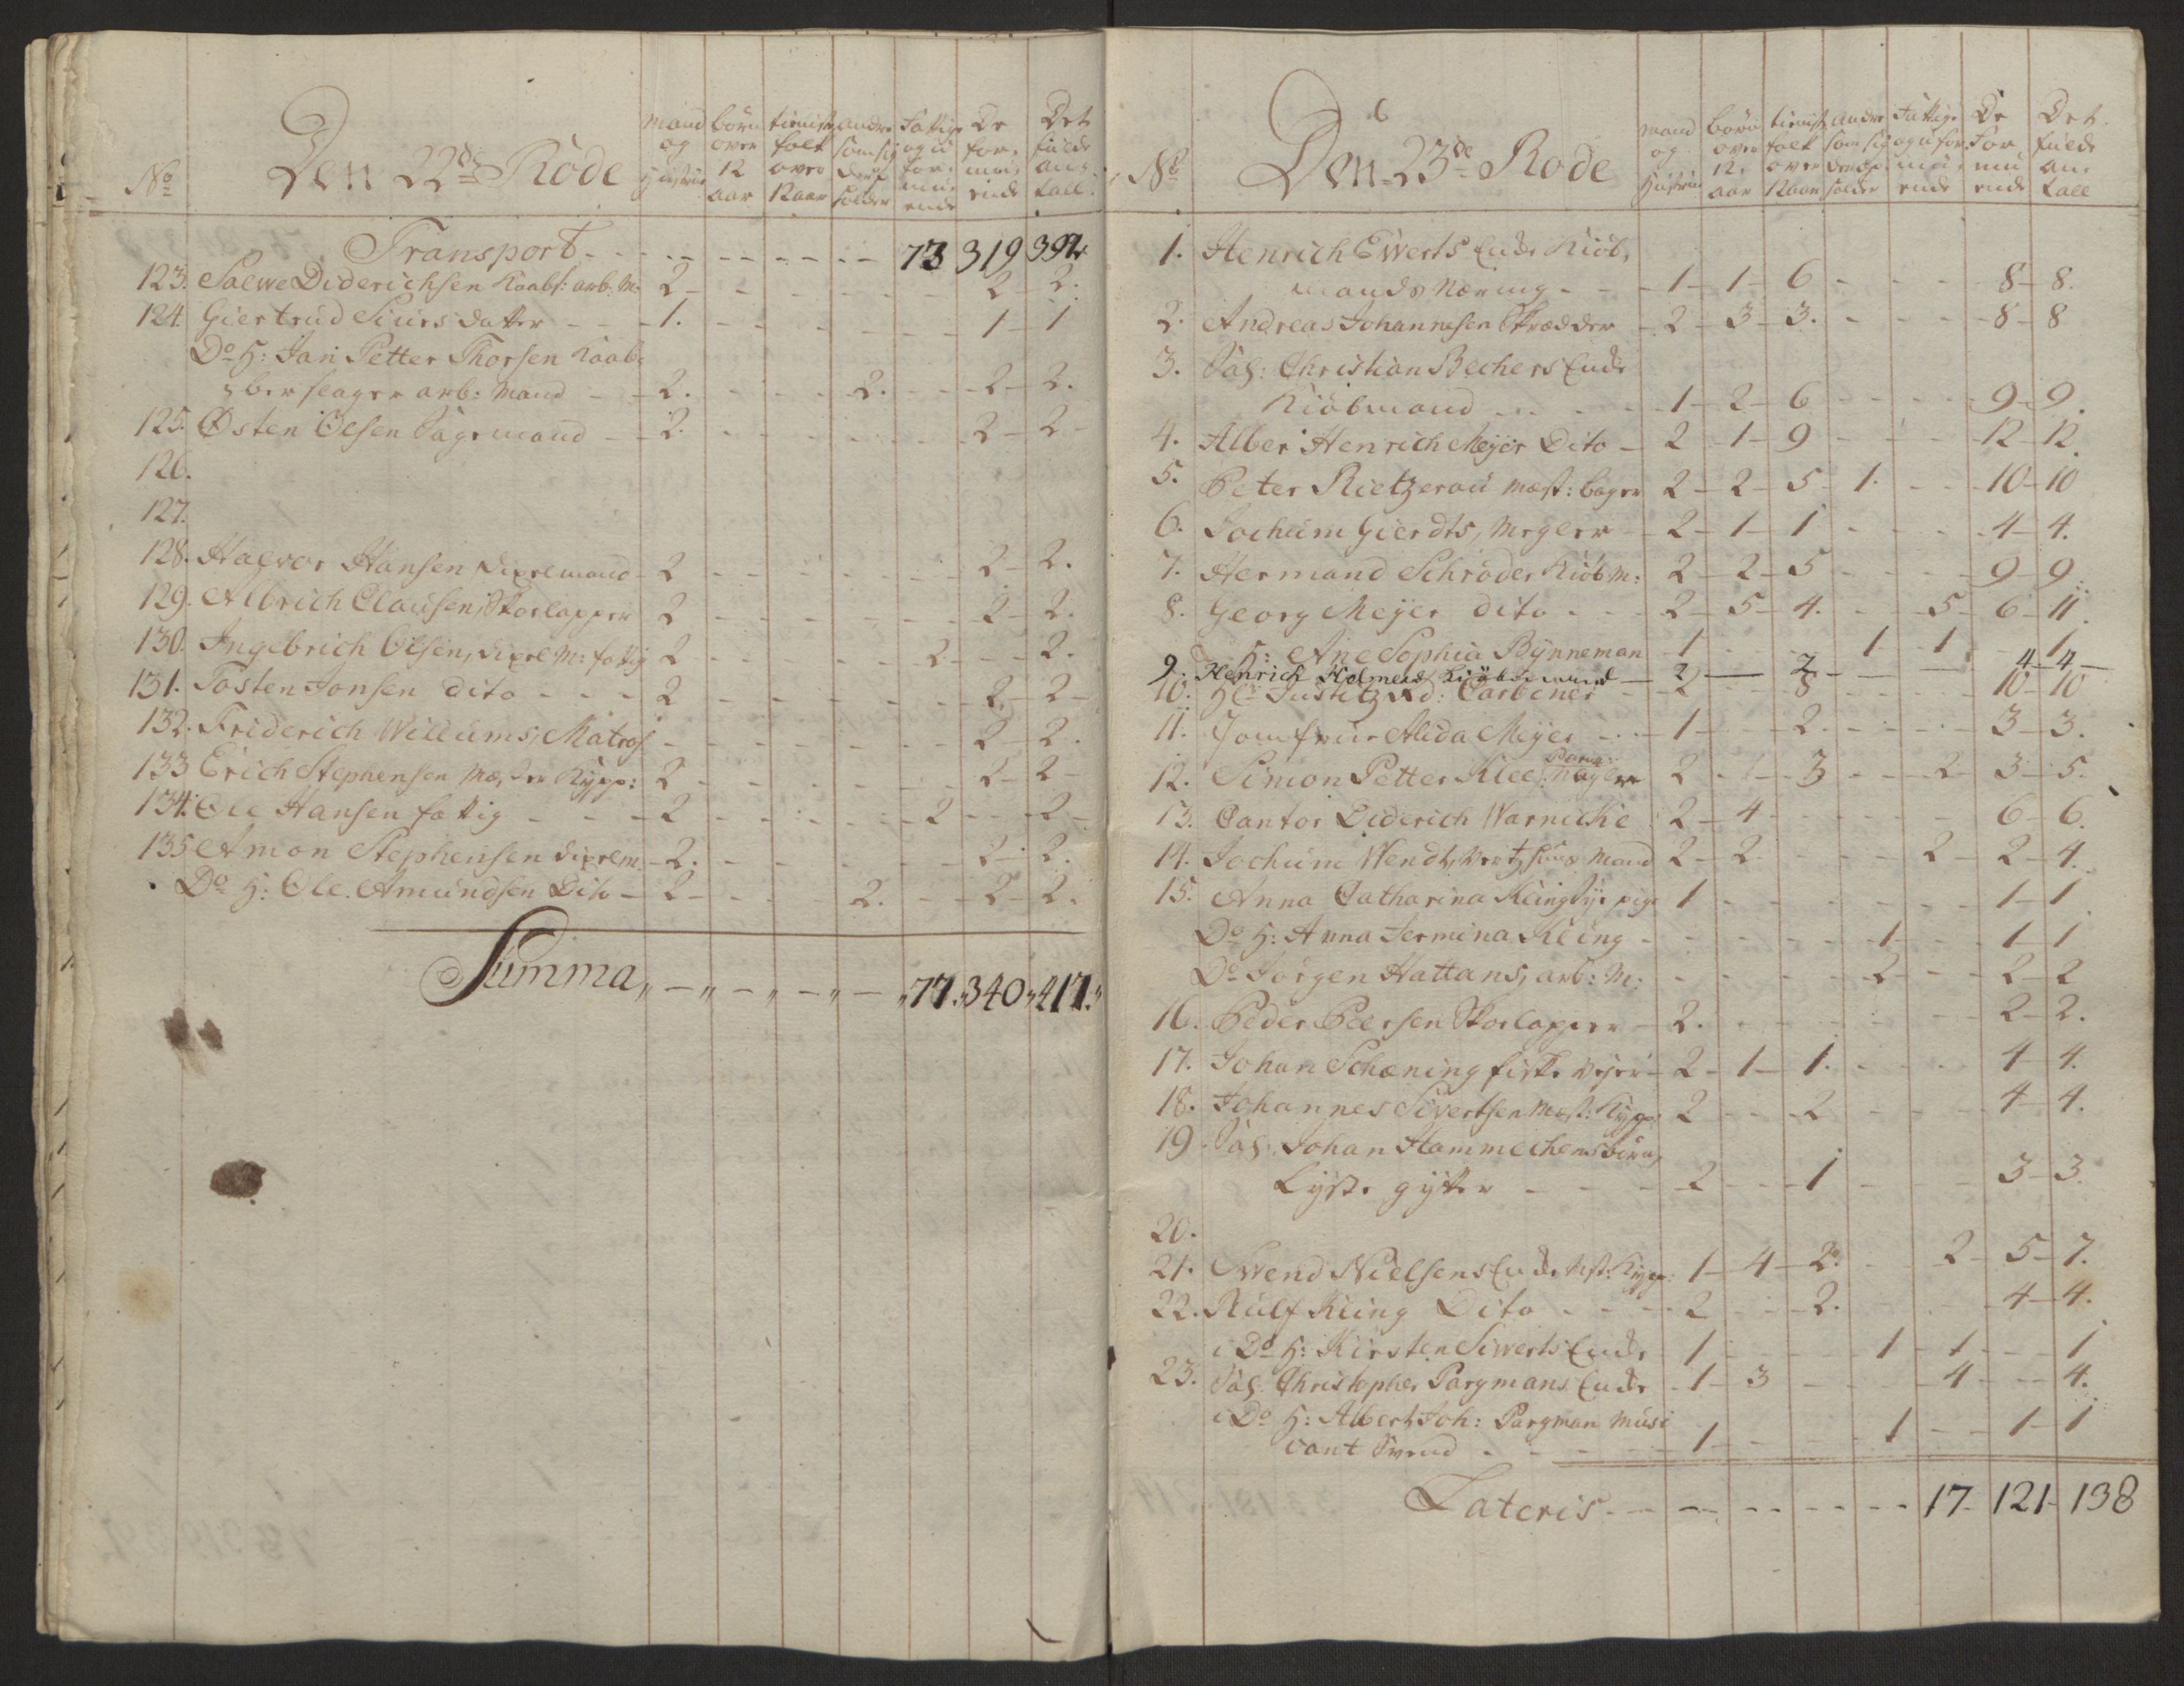 No Den 22de Rode
mand og Hustrue
børn over 12 aar
tieniste folk over 12 aar
andre som sig der op holder
Fattige og u for mu ende
De for mu ende
Det fulde an tall
Transport - - - - - 73 319 392
123. Salwe Diderichsen Kaabs: arb: M: 2 - - - 2 - 2.
124. Giertrud Siursdatter - - 1. - - - 1 - 1
Do H: Jan Petter Thorsen Kaab
berslager arb: Mand - - 2. - - 2. - - 2 - 2.
125. Østen Olsen Sagemand - - 2. - - - 2 - 2 -
126.
127.
128. Halvor Hansen Dixelmand - 2 - - - 2 - 2.
129. Albrich Clausen, Skoelapper 2 - - - 2 - 2.
130. Ingebrich Olsen, Dixel M: fattig 2 - - - 2 - - 2.
131. Tosten Jonsen dito - - - 2 - - - 2 - 2 -
132. Friderich Willums, Matros - - - - 2 - 2.
133 Erich Stephensen Mester Kypp: 2 - - - 2 - 2 -
134. Ole Hansen fattig - - - 2 - - - 2 - - 2 -
135 Amon Stephensen dixelm. - 2. - - - 2 - 2.
Do H: Ole Amundsen Dito - 2 - - - 2. - - 2 - 2.
Summa „ - „ - „ - „ - „ 77 „ 340 „ 417. „
No Den 23de Rode
mand og Hustrue
børn over 12 aar
tieniste folk over 12 aar
andre som sig der op holder
Fattige og u for mu ende
De For mu ende
Det fulde an tall
1. Henrich Ewerts Enke Kiøb,
mands Næring - - 1 - 1 - 6 - - - 8 - 8.
2. Andreas Johannesen Skrædder - 2 - 3 - 3. - - - 8 - 8
3. Sal: Christian Bechers Enke
Kiøbmand - - - 1 - 2 - 6 - - - 9 - 9.
4. Alber Henrich Meyer Dito - 2 - 1 - 9 - - - 12 - 12.
5. Peter Rietzerou Mest: bager 2 - 2 - 5 - 1. - - 10 - 10
6. Jochum Gierdts, Megler - 2 - 1 - 1 - - - 4 - 4.
7. Hermand Schrøder Kiøbm: 2 - 2 - 5 - - - 9 - 9
8. Georg Meyer dito - - - 2 - 5 - 4. - - 5 - 6 - 11.
H: Ane Sophia Bynneman 1 - - - 1 - 1 - - 1
9. Henrich Holmers Kiøbmand - 2 - 2 - - - 4 - 4 -
10. Hr Justitz Rd: Carbiner - 2 - - 8 - - - 10 - 10
11. Jomfrue Alida Meyer - - 1 - - 2. - - - 3 - 3.
12. Simon Petter Klee, 2 - 1 - 3 - - 2 - 3 - 5.
13. Cantor Diderich Warnicke 2 - 4 - - - - 6 - 6.
14. Jochum Wendt, Vertshuus Mand 2 - 2 - - - 2 - 2 - 4.
15. Anna Catharina Kling Sye pige 1 - - - - 1 - 1.
Do H: Anna Jermina Kling - - - - 1 - - 1 - 1
Do Jørgen Hattans, arb: M: - - - 2 - - 2 - 2
16. Peder Peersen Skoelapper - 2. - - - - 2 - 2.
17. Johan Schæning fiske Vejer - 2 - 1 - 1. - - - 4 - 4.
18. Johannes Sivertsen Mest: Kypp: 2 - - 2 - - - 4 - 4.
19. Sal: Johan Hammechens
Lysse gytter - - - 2 - - 1 - - 3 - 3.
20.
21. Swend Nielsens Enke Mst: Kypp: 1 - 4 - 2. - - 2 - 5 - 7.
22. Rulf Kling Dito - - - 2 - - 2. - - - 4 - 4.
i Do H: Kirsten Siwerts Enke 1 - - - 1 - 1 - - - 1
23. Sal: Christopher Pargmans Enke - 1 - 3 - - - 4 - - 4.
i Do H: Albert Joh: Pargman Musi
cant Svend - - - 1 - - - 1 - - 1 - 1
Lateris - - - - - - 17 - 121 - 138